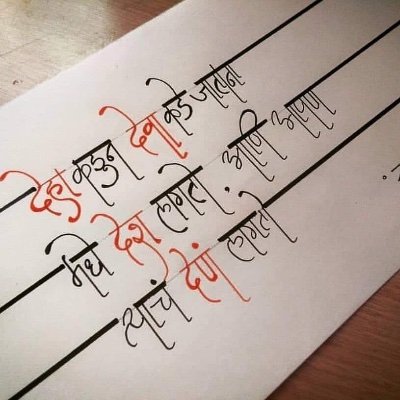 देहाकडून देवाकडे जाताना
मधे देश लागतो. आणि आपण
त्याचं देणं लागतो